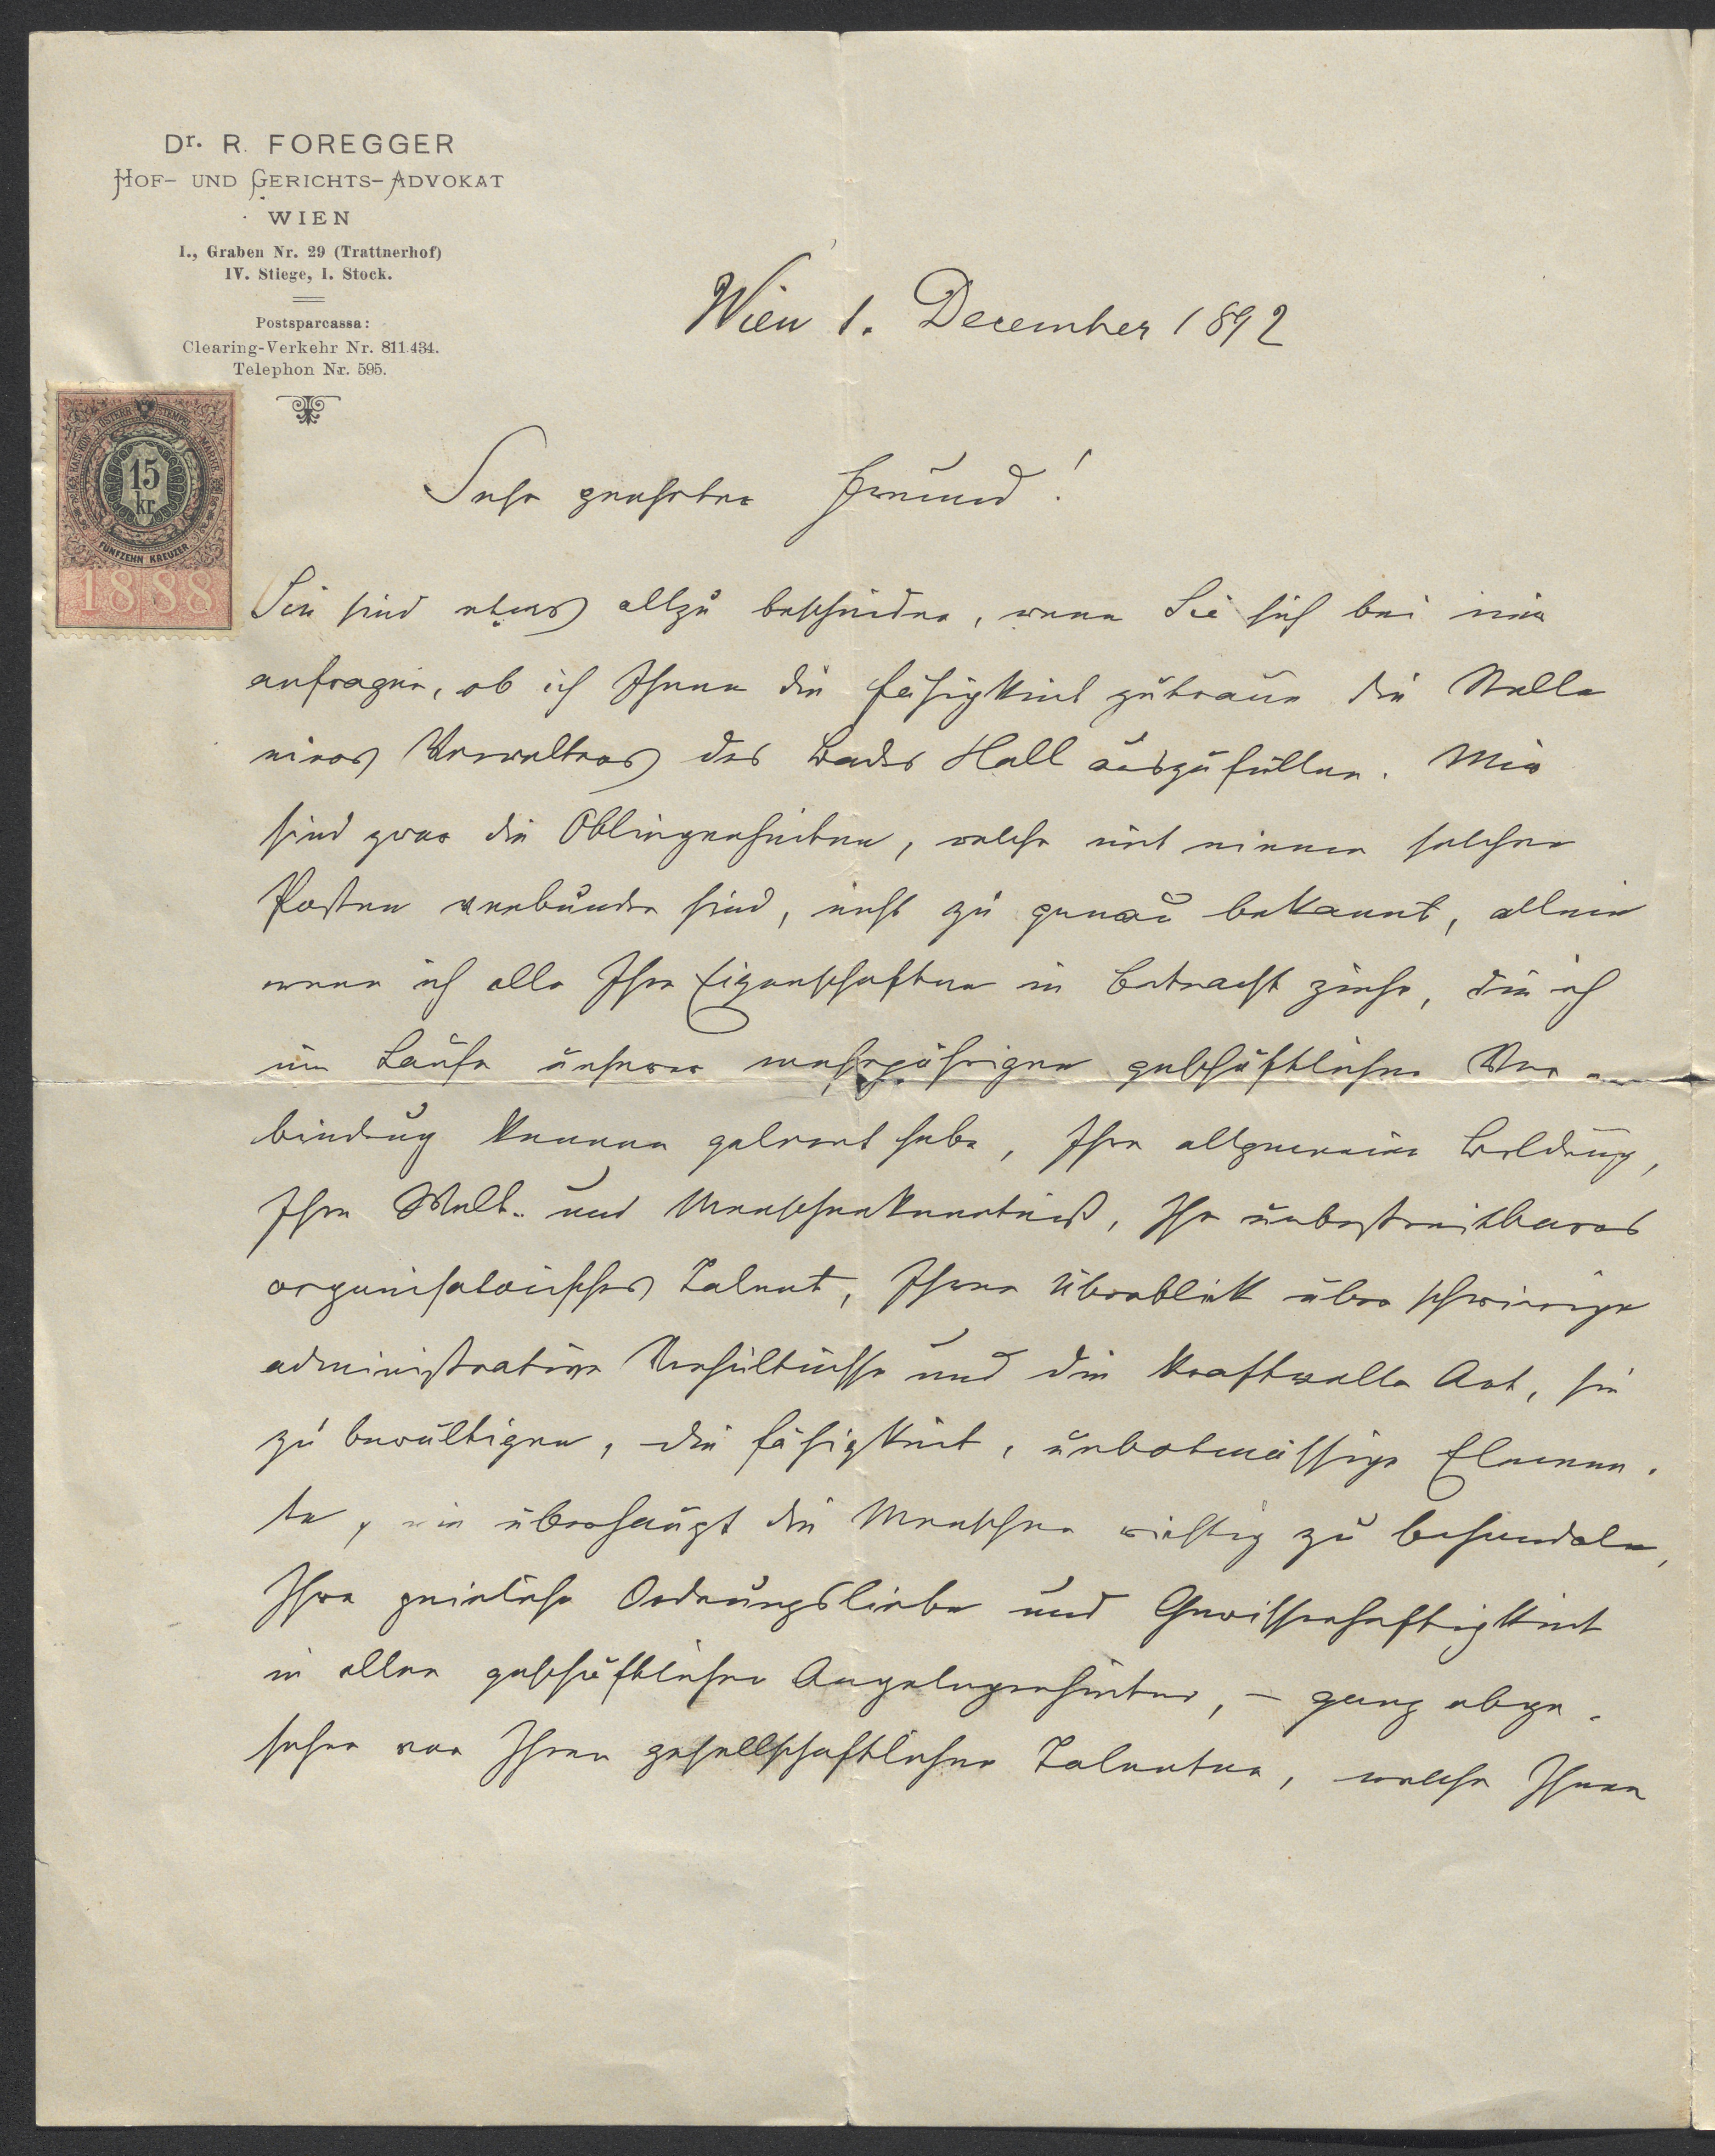 Dr. R. FOREGGER
HOF- UND GERICHTS-ADVOKAT
WIEN
I., Graben Nr. 29 (Trattnerhof)
IV. Stiege, I. Stock.
Postsparcassa:
Clearing-Verkehr Nr. 811.434.
Telephon Nr. 595.
Wien 1. December 1892
KAIS. KÖN. ÖSTERR. STEMPEL MARKE
15
kr
FÜNFZEHN KREUZER
1888
Sehr geehrter Freund!
Sie sind etwas allzu bescheiden, wenn Sie sich bei mir
anfragen, ob ich Ihnen die Fähigkeit zutraue die Stelle
eines Verwalters des Bades Hall auszufüllen. Mir
sind zwar die Obliegenheiten, welche mit einem solchen
Posten verbunden sind, nicht zu genau bekannt, allein
wenn ich alle Ihre Eigenschaften in Betracht ziehe, die ich
im Laufe unserer mehrjährigen geschäftlichen Ver-
bindung kennen gelernt habe, Ihre allgemeine Bildung,
Ihre Welt- und Menschenkenntniß, Ihr unbestreitbares
organisatorisches Talent, Ihren Überblick über schwierige
administrative Verhältnisse und die kraftvolle Art, sie
zu bewältigen, die Fähigkeit, unbotmässige Elemen-
te, wie überhaupt die Menschen richtig zu behandeln,
Ihre peinliche Ordnungsliebe und Gewissenhaftigkeit
in allen geschäftlichen Angelegenheiten, – ganz abge-
sehen von Ihren gesellschaftlichen Talenten, welche Ihnen